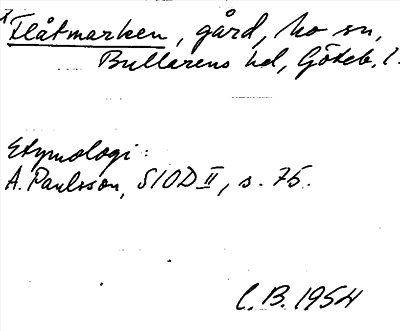 Flåtmarken, gård, ho sn,
Bullarens hd, Göteb. l.
Etymologi:
A. Paulsson, SIOD II, s. 75.
C. B. 1954